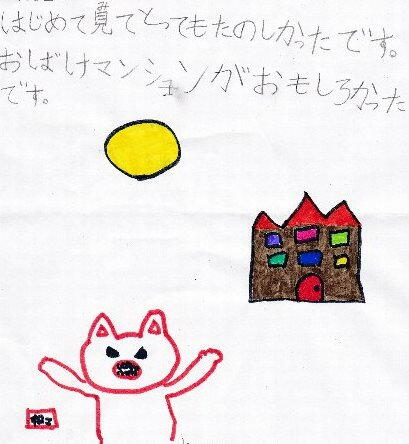 はじめて見てとってもたのしかったです。
おばけマンションがおもしろかった
です。